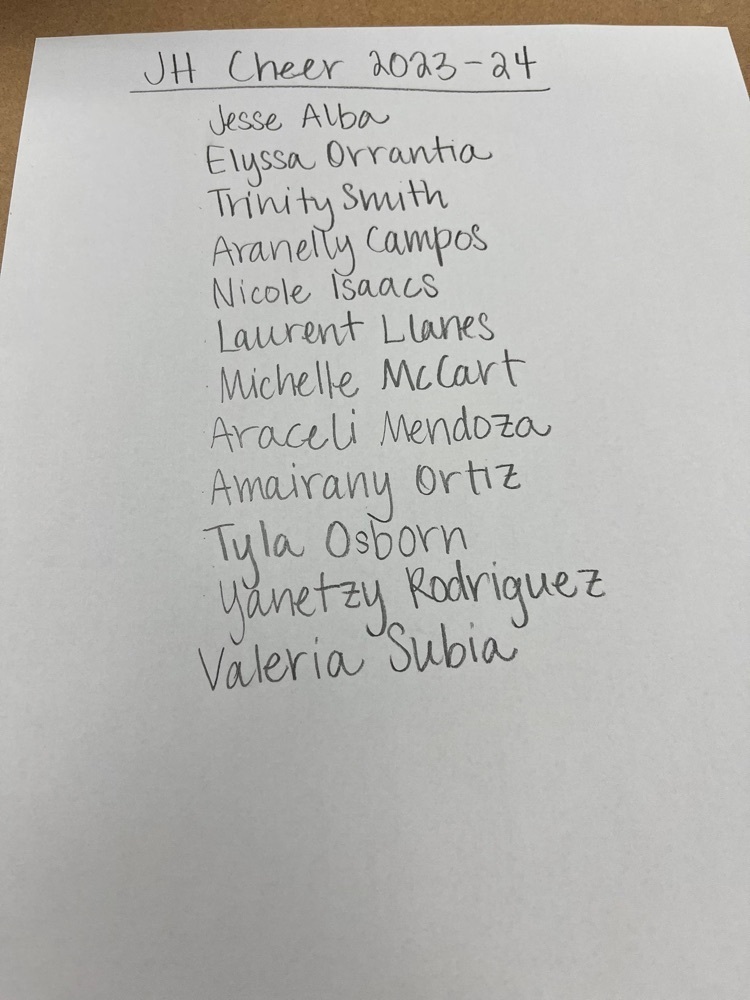 JH Cheer 2023-24
Jesse Alba
Elyssa Orrantia
Trinity Smith
Aranelly Campos
Nicole Isaacs
Laurent Llanes
Michelle McCart
Araceli Mendoza
Amairany Ortiz
Tyla Osborn
Yanetzy Rodriguez
Valeria Subia